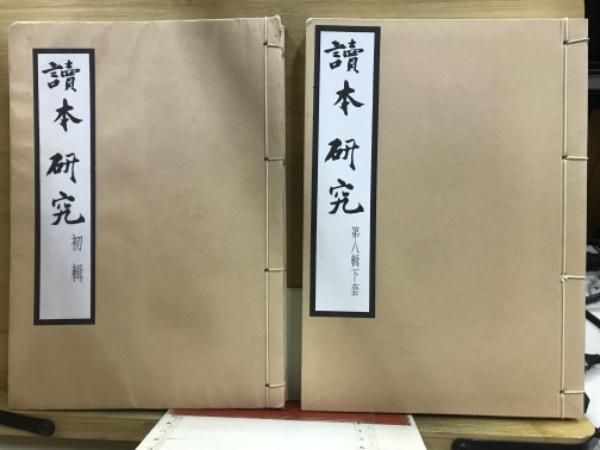 讀本研究
初輯
讀本研究
第八輯下套